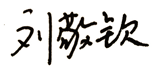 刘敬钦